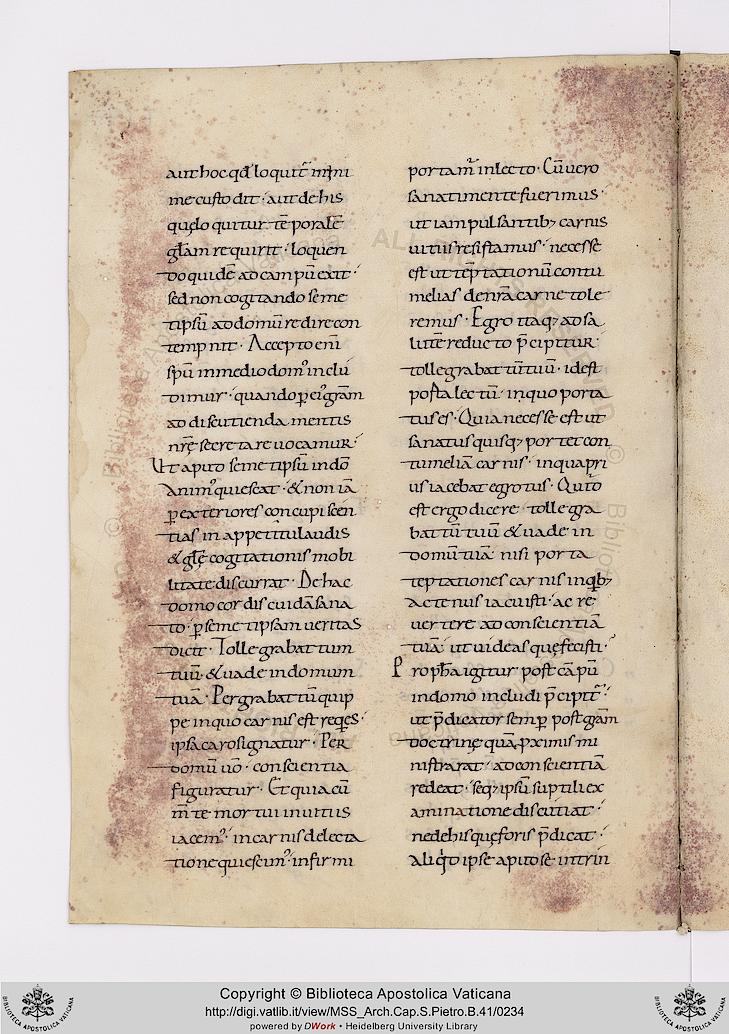 aut hoc qđ loquit̄ mini
me custodit · aut de his
quę loquitur tēporalē
gl̄am requirit · loquen
do quidē ad campū exit ·
sed non cogitando seme
tipsū ad domū redire con
tempnit · Accepto enī
spū in medio dom᾽ inclu
dimur · quando ꝑ ei᾽ gr̄am
ad discutienda mentis
nr̄ę secreta reuocamur ·
Vt apito semetipsū in dō
Anim᾽ quiescat · & non iā
ꝑ exteriores concupiscen
tias in appetitū laudis
& gl̄ę cogitationis mobi
litate discurrat · De hac
domo cordis cuidā sana
to · ꝑ semetipsam ueritas
dicit · Tolle grabattum
tuū · & uade in domum
tuā · Per grabattū quip
pe in quo carnis est reqēs ·
ipsa caro signatur · Per
domū ūo · conscientia
figuratur · Et quia cū
m̄te mortui in uitiis
iacem᾽ · in carnis delecta
tione quiescim᾽ · infirmi
portam̄ in lecto · Cū uero
sanati mente fuerimus ·
ut iam pulsantibꝫ carnis
uitiis resistamus · necesse
est ut tēptationū contu
melias de nr̄a carne tole
remus · Egro itaqꝫ ad sa
lutē reducto p̄cipitur
tolle grabattū tuū · idest
porta lectū · in quo porta
tus es · Quia necesse est ut
sanatus quisqꝫ portet con
tumeliā carnis · in qua pri
us iacebat egrotus · Quid
est ergo dicere tolle gra
battū tuū & uade in
domū tuā nisi porta
teptationes carnis in qbꝫ
actenus iacuisti · ac re
uertere ad conscientiā
tuā · ut uideas quę fecisti ·
Propħa igitur post cāpū
in domo includi p̄cipit̄ ·
ut p̄dicator semꝑ post gr̄am
doctrinę quā ꝓximis mi
nistrarat · ad conscientiā
redeat · seqꝫ ipsū suptili ex
aminatione discutiat ·
ne de his quę foris p̄dicat ·
aliqđ ipse apito se intrin
Copyright © Biblioteca Apostolica Vaticana
http://digi.vatlib.it/view/MSS_Arch.Cap.S.Pietro.B.41/0234
powered by DWork • Heidelberg University Library